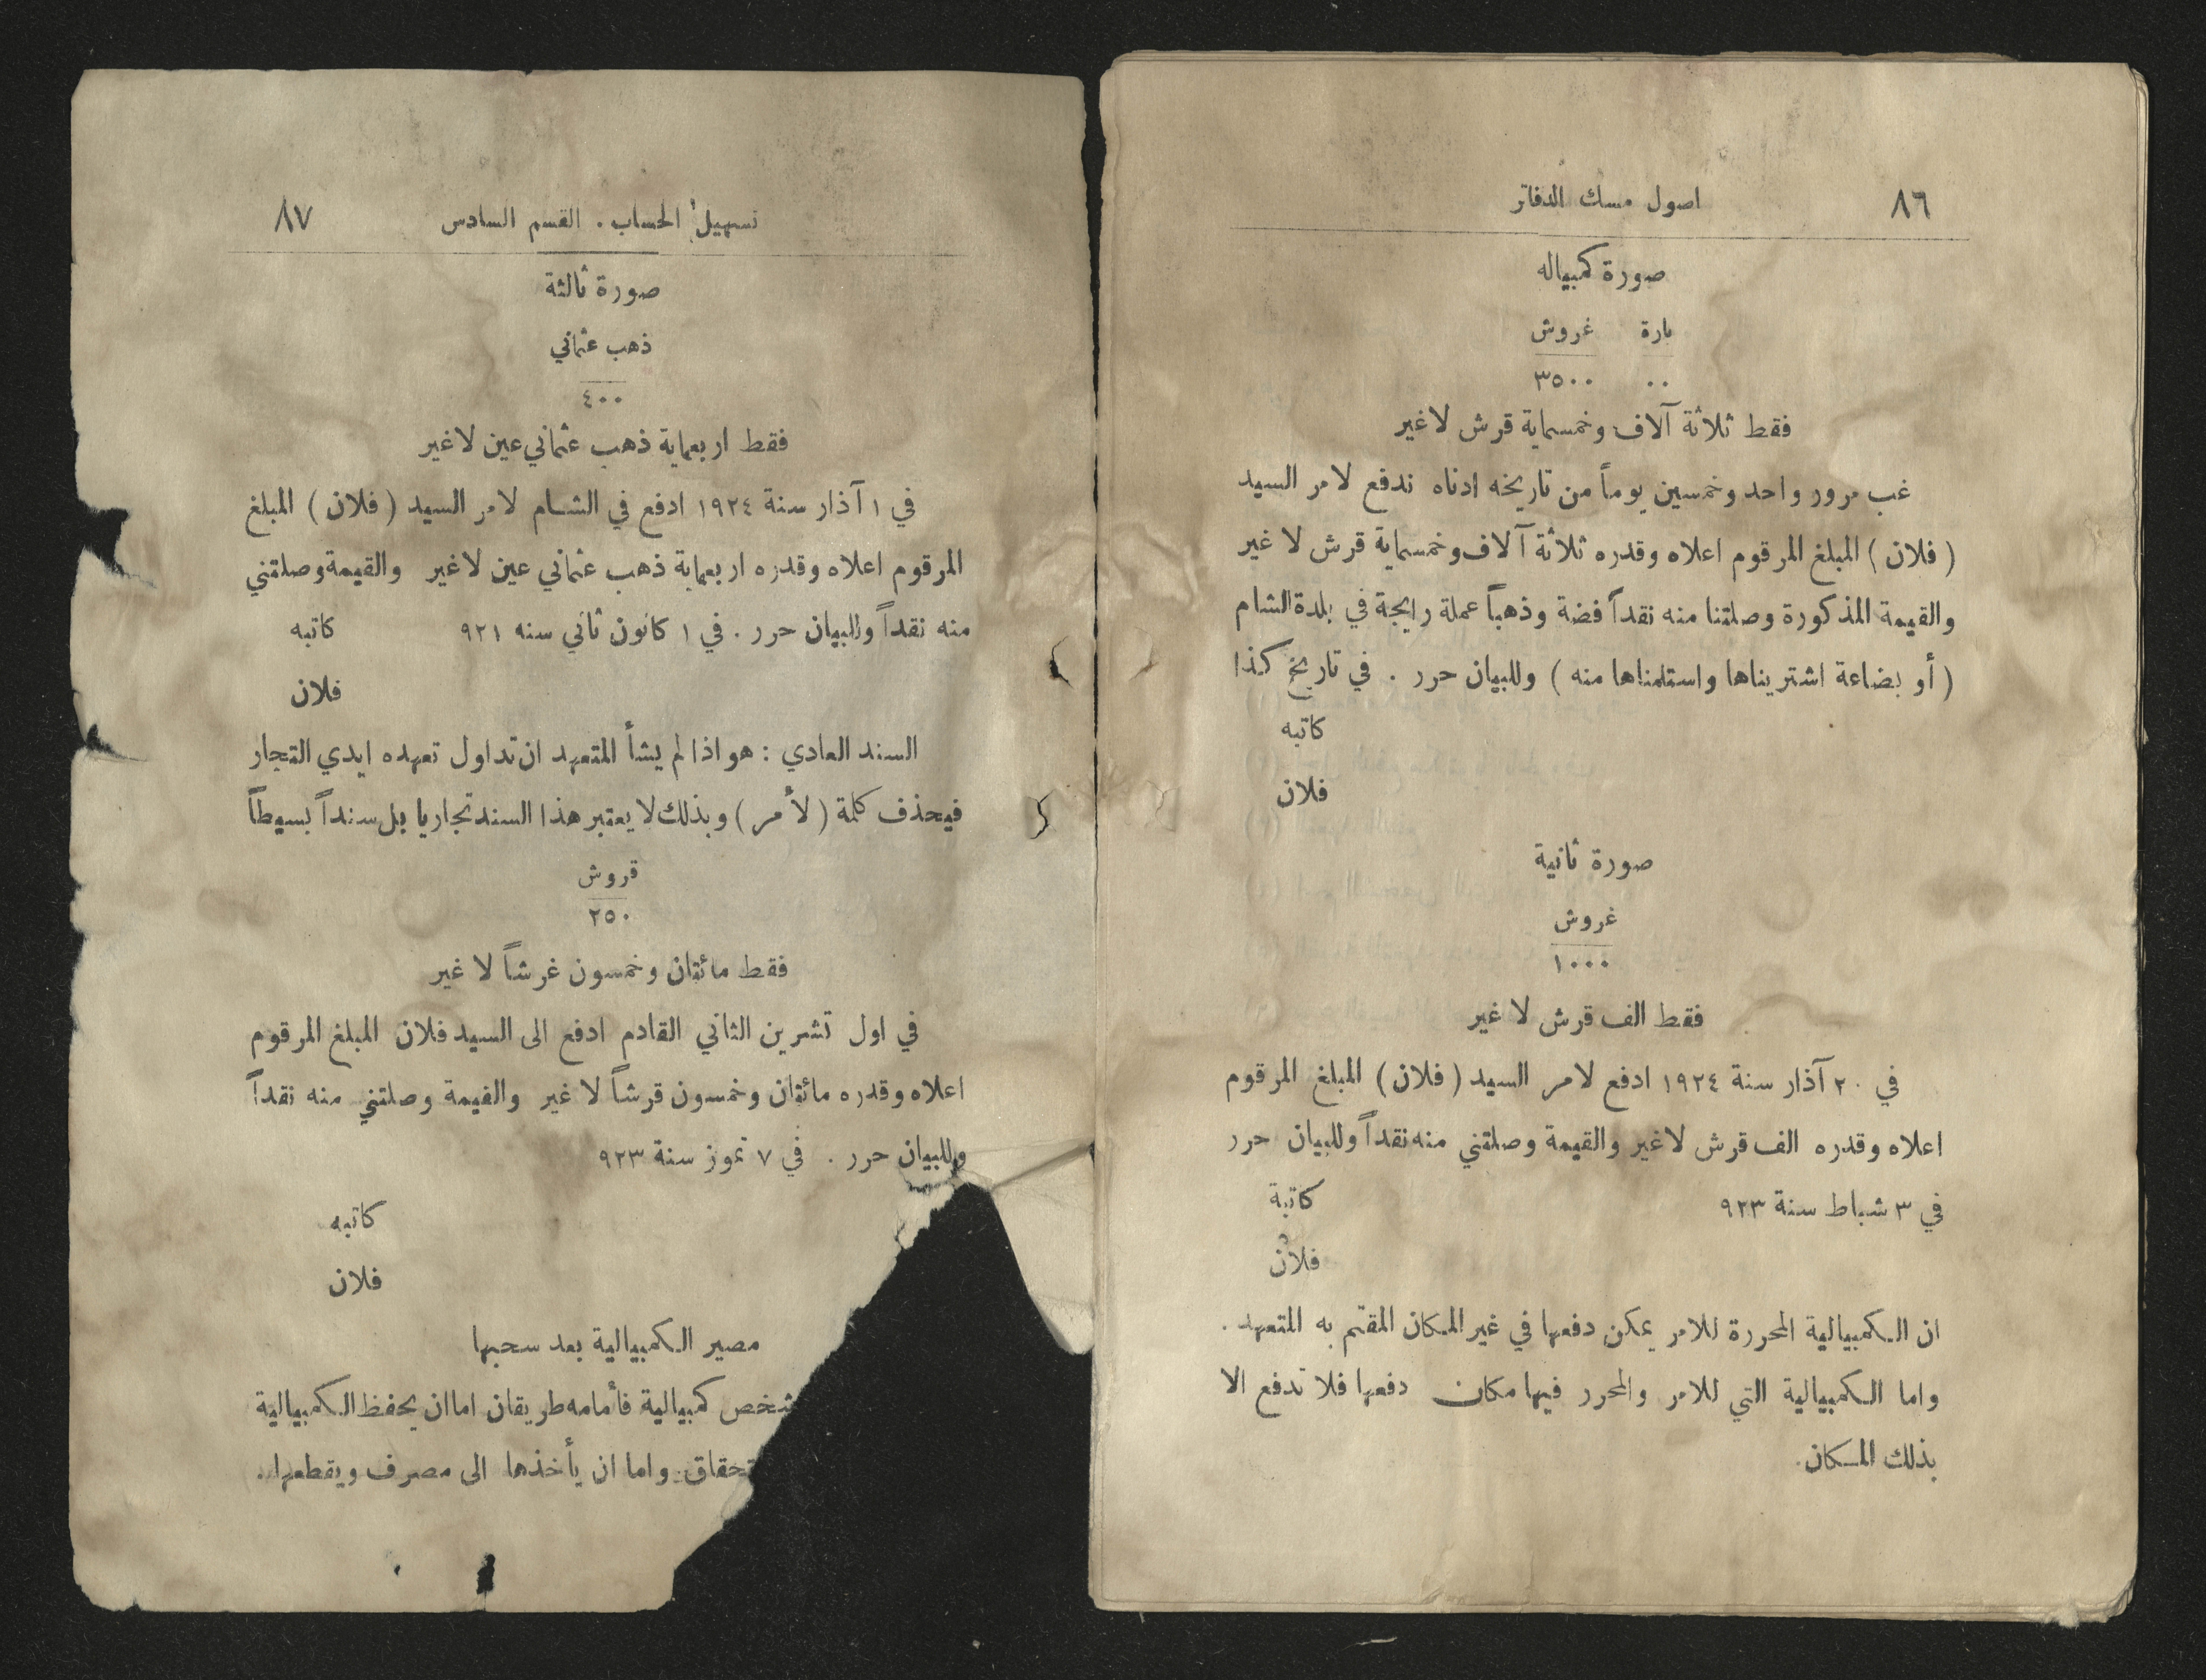 ٨٦
اصول مسك الدفاتر
صورة كمبياله
بارة غروش
٠٠ ٣٥٠٠
فقط ثلاثة آلاف وخمسماية قرش لاغير
غب مرور واحد وخمسين يوماً من تاريخه ادناه ندفع لامر السيد
( فلان ) المبلغ المرقوم اعلاه وقدره ثلاثة آلاف وخمسماية قرش لا غير
والقيمة المذكورة وصلتنا منه نقداً فضة وذهباً عملة رايجة في بلدة الشام
( أو بضاعة اشتريناها واستلمناها منه ) وللبيان حرر . في تاريخ كذا
كاتبه
فلان
صورة ثانية
غروش
١٠٠٠
فقط الف قرش لا غير
في ٢٠ آذار سنة ١٩٢٤ ادفع لامر السيد ( فلان ) المبلغ المرقوم
اعلاه وقدره الف قرش لاغير والقيمة وصلتني منه نقداً وللبيان حرر
في ٣ شباط سنة ٩٢٣ كاتبة
فلان
ان الكمبيالية المحررة للامر يمكن دفعها في غير المكان المقيم به المتعهد .
واما الكمبيالية التي للامر والمحرر فيها مكان دفعها فلا تدفع الا
بذلك المكان.
تسهيل الحساب . القسم السادس
٨٧
صورة ثالثة
ذهب عثماني
٤٠٠
فقط اربعماية ذهب عثماني عين لاغير
في ١ آذار سنة ١٩٢٤ ادفع في الشام لامر السيد ( فلان ) المبلغ
المرقوم اعلاه وقدره اربعماية ذهب عثماني عين لاغير والقيمة وصلتني
منه نقداً وللبيان حرر . في ١ كانون ثاني سنه ٩٢١ كاتبه
فلان
السند العادي : هو اذا لم يشأ المتعهد ان تداول تعهده ايدي التجار
فيحذف كلمة ( لأمر ) وبذلك لا يعتبر هذا السند تجاريا بل سنداً بسيطاً
قروش
٢٥٠
فقط مائتان وخمسون غرشاً لا غير
في اول تشرين الثاني القادم ادفع الى السيد فلان المبلغ المرقوم
اعلاه وقدره مائتان وخمسون قرشاً لا غير والقيمة وصلتني منه نقداً
وللبيان حرر . في ٧ تموز سنة ٩٢٣
كاتبه
فلان
مصير الكمبيالية بعد سحبها
شخص كمبيالية فأمامه طريقان اما ان يحفظ الكمبيالية
تحقاق . واما ان يأخذها الى مصرف ويقطعها .